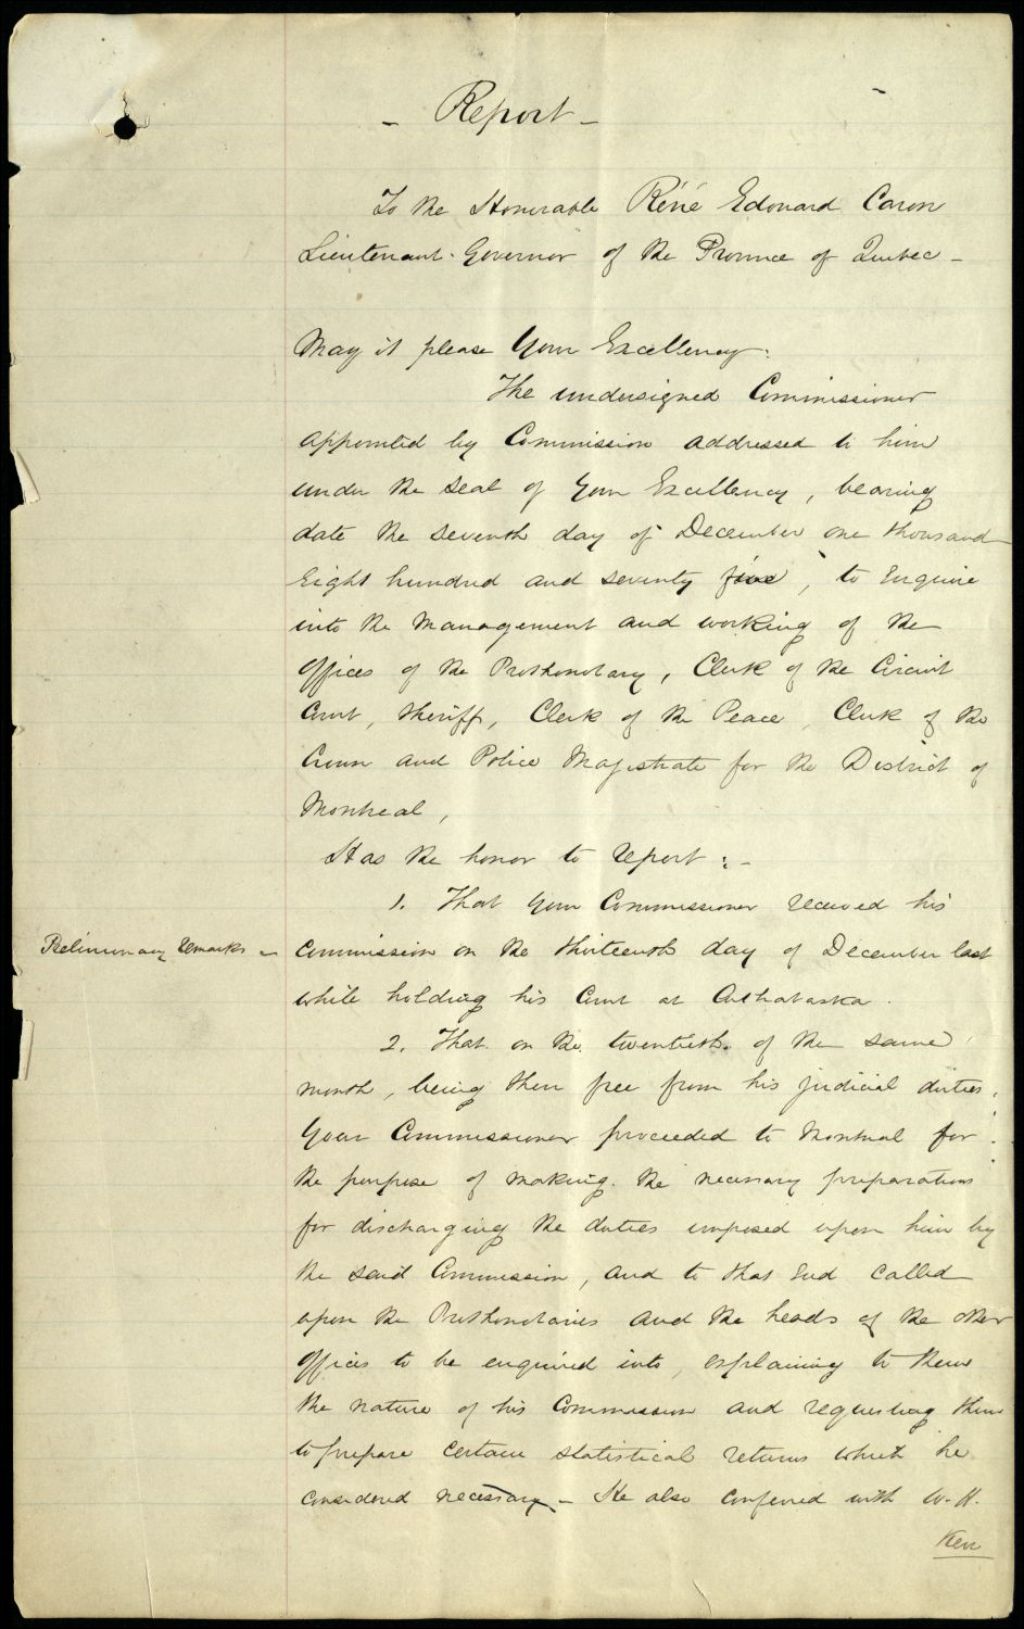 - Report -
To the Honorable Réné Edouard Caron
Lieutenant-Governor of the Province of Quebec -
May it please Your Excellency:
The undersigned Commissioner
appointed by Commission addressed to him
under the seal of Your Excellency, bearing
date the seventh day of December one thousand
Eight hundred and seventy five, to Enquire
into the Management and working of the
Offices of the Prothonotary, Clerk of the Circuit
Court, Sheriff, Clerk of the Peace, Clerk of the
Crown and Police Magistrate for the District of
Montreal,
Has the honor to report :-
1. That Your Commissioner received his
Preliminary remarks - Commission on the thirteenth day of December last
while holding his Court at Arthabaska.
2. That on the twentieth of the same
month, being then free from his judicial duties,
Your Commissioner proceeded to Montreal for
the purpose of making the necessary preparations
for discharging the duties imposed upon him by
the said Commission, and to that End called
upon the Prothonotaries and the heads of the other
Offices to be enquired into, explaining to them
the nature of his Commission and requesting them
to prepare certain statistical returns which he
considered necessary - He also conferred with W. H.
Kerr